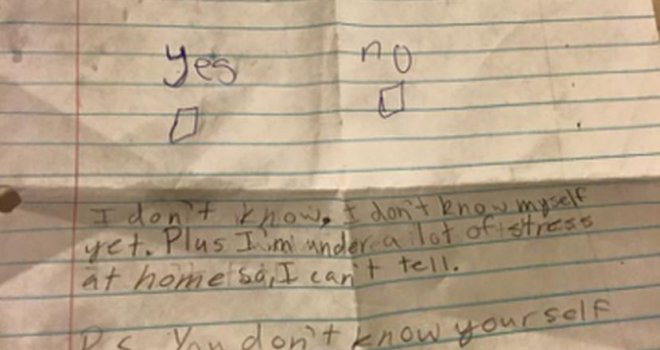 yes no
I don't know, I don't know myself
yet. Plus I'm under a lot of stress
at home so, I can't tell.
P.s. You don't know yourself